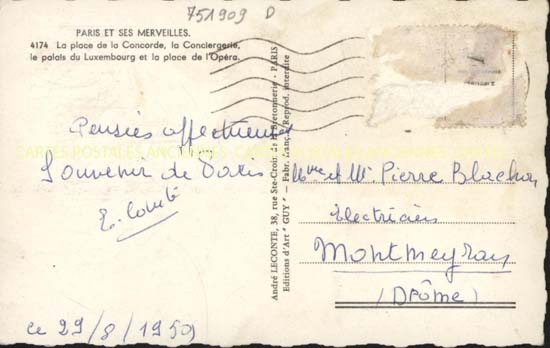 751909 D
PARIS ET SES MERVEILLES.
4174 La place de la Concorde, la Conciergerie,
le palais du Luxembourg et la place de l'Opéra.
Pensées affectueuses
Souvenir de Paris
E. Comte
ce 29/8/1959
André LECONTE, 38, rue Ste-Croix de la Bretonnerie - PARIS
Editions d'Art "GUY" - Fabr. Franç. - Reprod. interdite
Mme et Mr Pierre Blachon
Electricien
Montmeyran
(Drôme)
CARTES POSTALES ANCIENNES